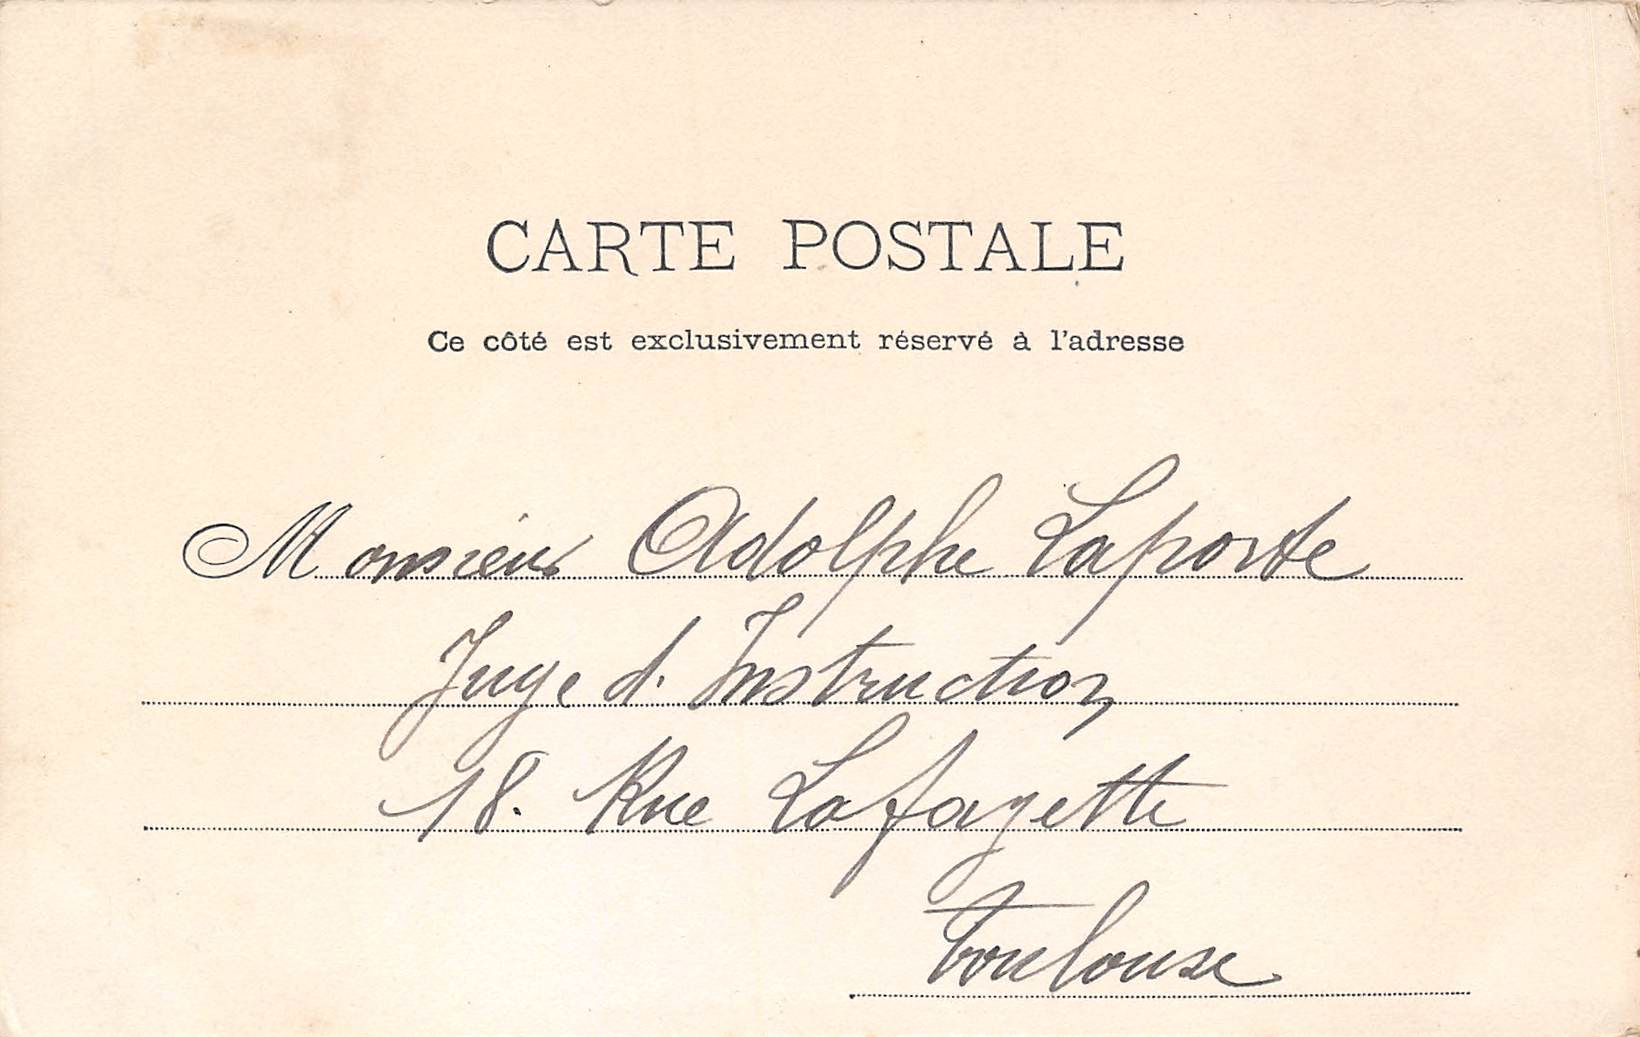 CARTE POSTALE
Ce côté est exclusivement réservé à l'adresse
Monsieur Adolphe Laporte
Juge d. Instruction
18. Rue Lafayette
Toulouse